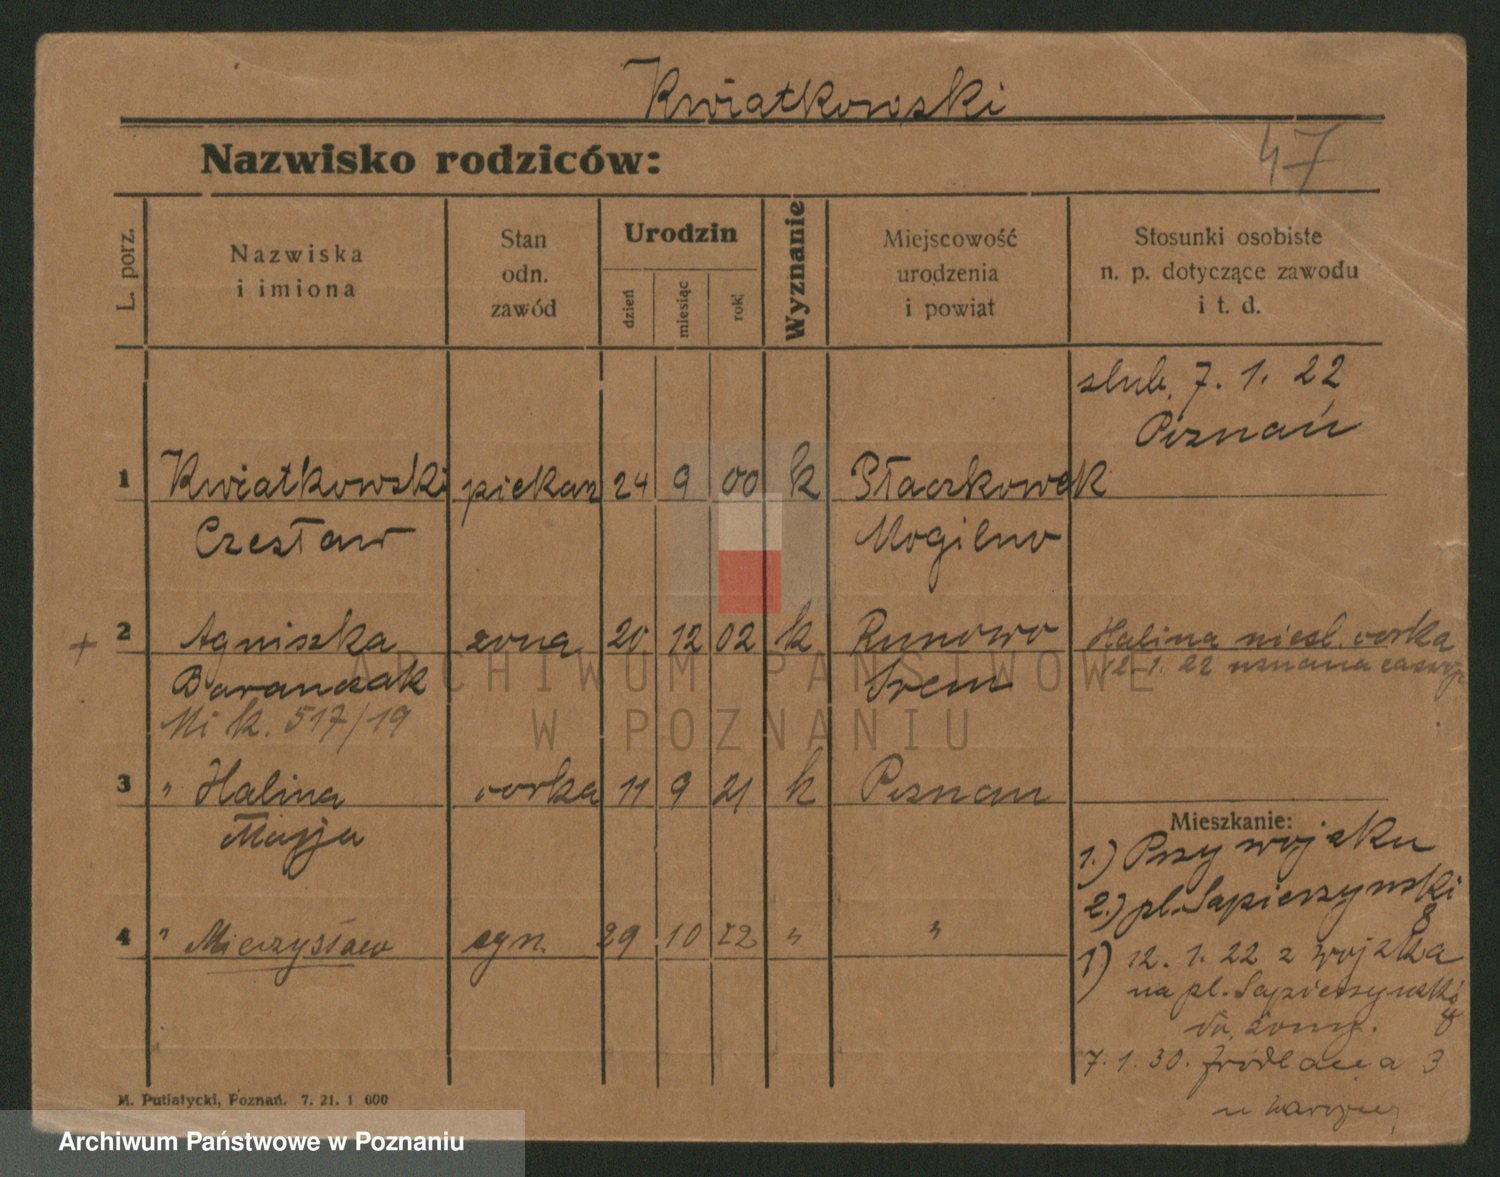 Kwiatkowski
Nazwisko rodziców:
47
L. porz.
Nazwiska
i imiona
Stan
odn.
zawód
Urodzin
dzień
miesiąc
rok
Wyznanie
Miejscowość
urodzenia
i powiat
Stosunki osobiste
n. p. dotyczące zawodu
i t. d.
slub. 7. 1. 22
Poznań
1 Kwiatkowski piekarz 24 9 00 k Płaczkowek
Czesław Mogilno
+ 2 Agniszka zona 20 12 02 k Runowo Halina niesl. corka
12. 1. 22 uznana
Baranczak Srem
Mi k. 517/19
3 " Halina corka 11 9 21 k Poznan
Marja
Mieszkanie:
1.) Przy wojsku
2.) pl. Sapierzynski
8
4 " Mieczysław syn. 29 10 22 " "
1) 12. 1. 22 z wojska
na pl. Sapierzynski
do żony. 8
7. 1. 30. Źródlana 3
M. Putiatycki, Poznań. 7. 21. 1 000
ARCHIWUM PAŃSTWOWE
W POZNANIU
Archiwum Państwowe w Poznaniu